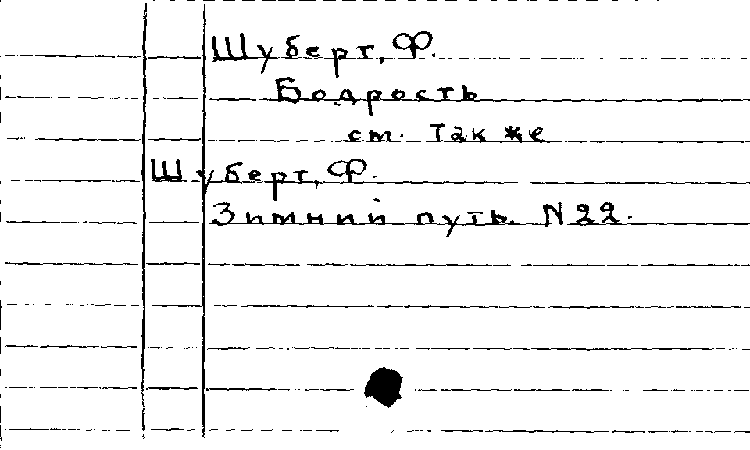 Шуберт, Ф.
Бодрость
ст. Так же
Шуберт, Ф.
Зимний путь. N 22.